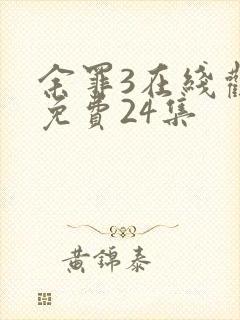 余罪3在綫觀
免費24集
黃錦泰